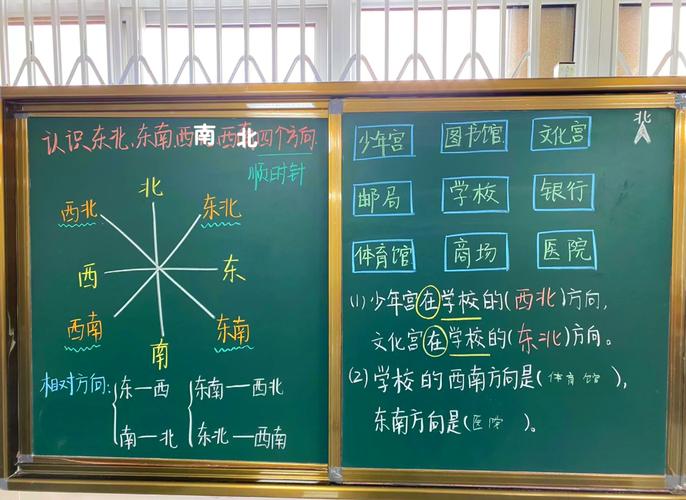 认识东北、东南、西南、西北四个方向
顺时针
北
西北 东北
西 东
西南 东南
南
相对方向:
东—西
南—北
东南—西北
东北—西南
北
少年宫 图书馆 文化宫
邮局 学校 银行
体育馆 商场 医院
(1)少年宫在学校的(西北)方向,
文化宫在学校的(东北)方向。
(2)学校的西南方向是(体育馆),
东南方向是(医院)。